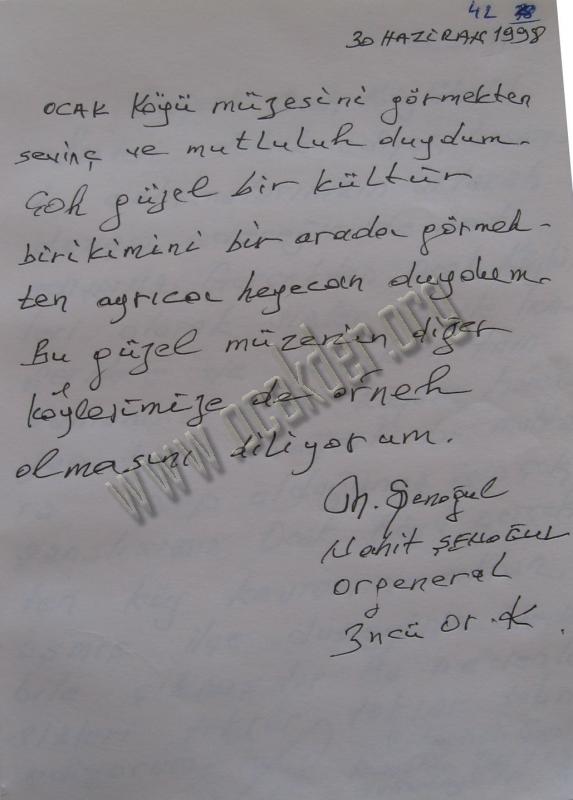 42
30 HAZİRAN 1998
OCAK Köyü müzesini görmekten
sevinç ve mutluluk duydum.
Çok güzel bir kültür
birikimini bir arada görmek-
ten ayrıca heyecan duydum.
Bu güzel müzenin diğer
köylerimize de örnek
olmasını diliyorum.
N. Şenoğul
Nahit ŞENOĞUL
Orgeneral
3ncü Or. K.
www.ocakder.org